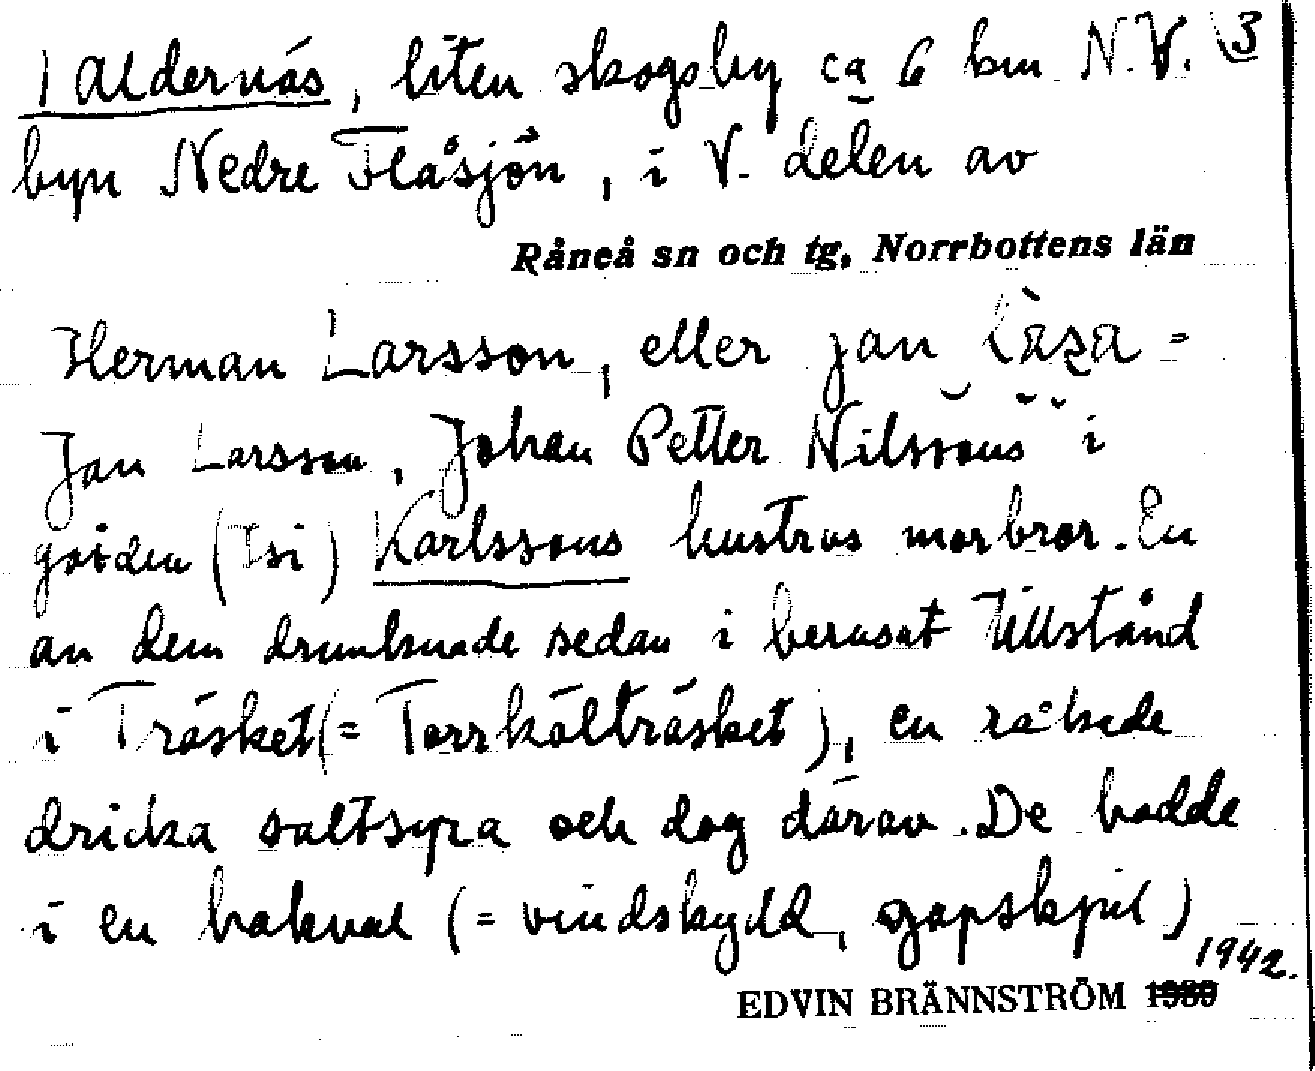 Aldernäs, liten skogsby ca 6 km N.V. 3
byn Nedre Flåsjön, i V. delen av
Råneå sn och tg, Norrbottens län
Herman Larsson, eller jan Lăsa =
Jan Larsson, Johan Petter Nilssons i
gården (Isi) Karlssons hustrus morbror. En
av dem drunknade sedan i berusat tillstånd
i Träsket (= Torrkälträsket), en råkade
dricka saltsyra och dog därav. De hodde
i en (= vindskydd, gapskjul)
1942.
EDVIN BRÄNNSTRÖM 1930